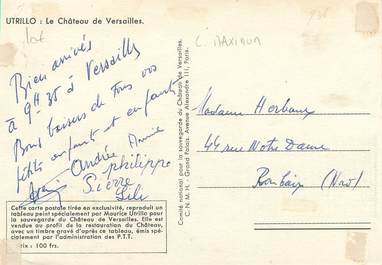 UTRILLO : Le Château de Versailles.
C. MAXIMUM
Bien arrivés
à 9H 35 à Versailles
Bons baisers de tous vos
petits enfant et enfants
Annie
Andrée
philippe
Pierre
Lili
Madame Herbaux
44 rue Notre Dame
Roubaix (Nord)
Comité national pour la sauvegarde du Château de Versailles.
C.N.M.H. - Grand Palais. Avenue Alexandre III, Paris.
Cette carte postale tirée en exclusivité, reproduit un
tableau peint spécialement par Maurice Utrillo pour
la sauvegarde du Château de Versailles. Elle est
vendue au profit de la restauration du Château,
avec un timbre gravé d'après ce tableau, émis spé-
cialement par l'administration des P.T.T.
Prix : 100 frs.